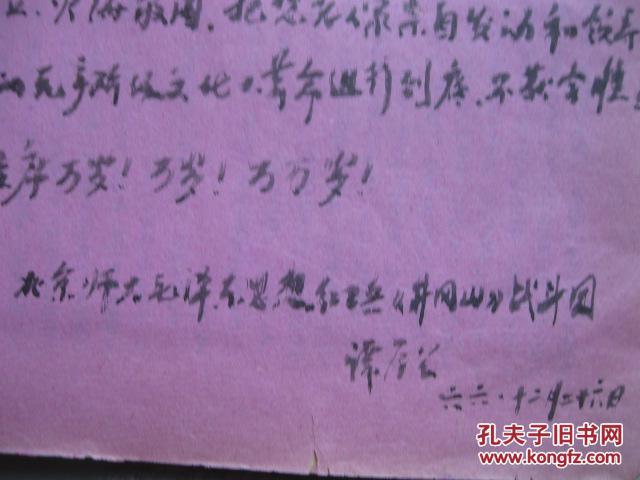 把您老人家亲自发动和领导
的无产阶级文化大革命进行到底、不获全胜
万岁！万岁！万万岁！
北京师大毛泽东思想红卫兵《井冈山》战斗团
谭厚兰
六六·十二月二十六日
孔夫子旧书网
www.kongfz.com